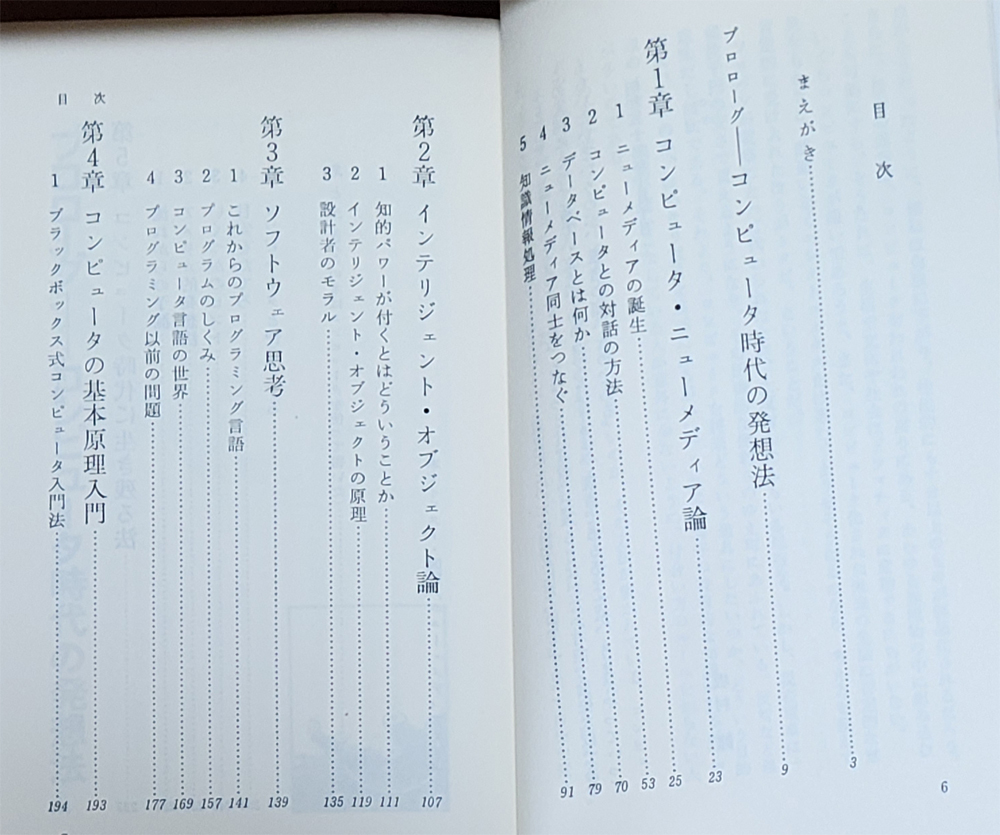 目 次
まえがき 3
プロローグ──コンピュータ時代の発想法 9
第1章 コンピュータ・ニューメディア論 23
1 ニューメディアの誕生 25
2 コンピュータとの対話の方法 53
3 データベースとは何か 70
4 ニューメディア同士をつなぐ 79
5 知識情報処理 91
6
第2章 インテリジェント・オブジェクト論 107
1 知的パワーが付くとはどういうことか 111
2 インテリジェント・オブジェクトの原理 119
3 設計者のモラル 135
第3章 ソフトウェア思考 139
1 これからのプログラミング言語 141
2 プログラムのしくみ 157
3 コンピュータ言語の世界 169
4 プログラミング以前の問題 177
第4章 コンピュータの基本原理入門 193
1 ブラックボックス式コンピュータ入門法 194
目 次